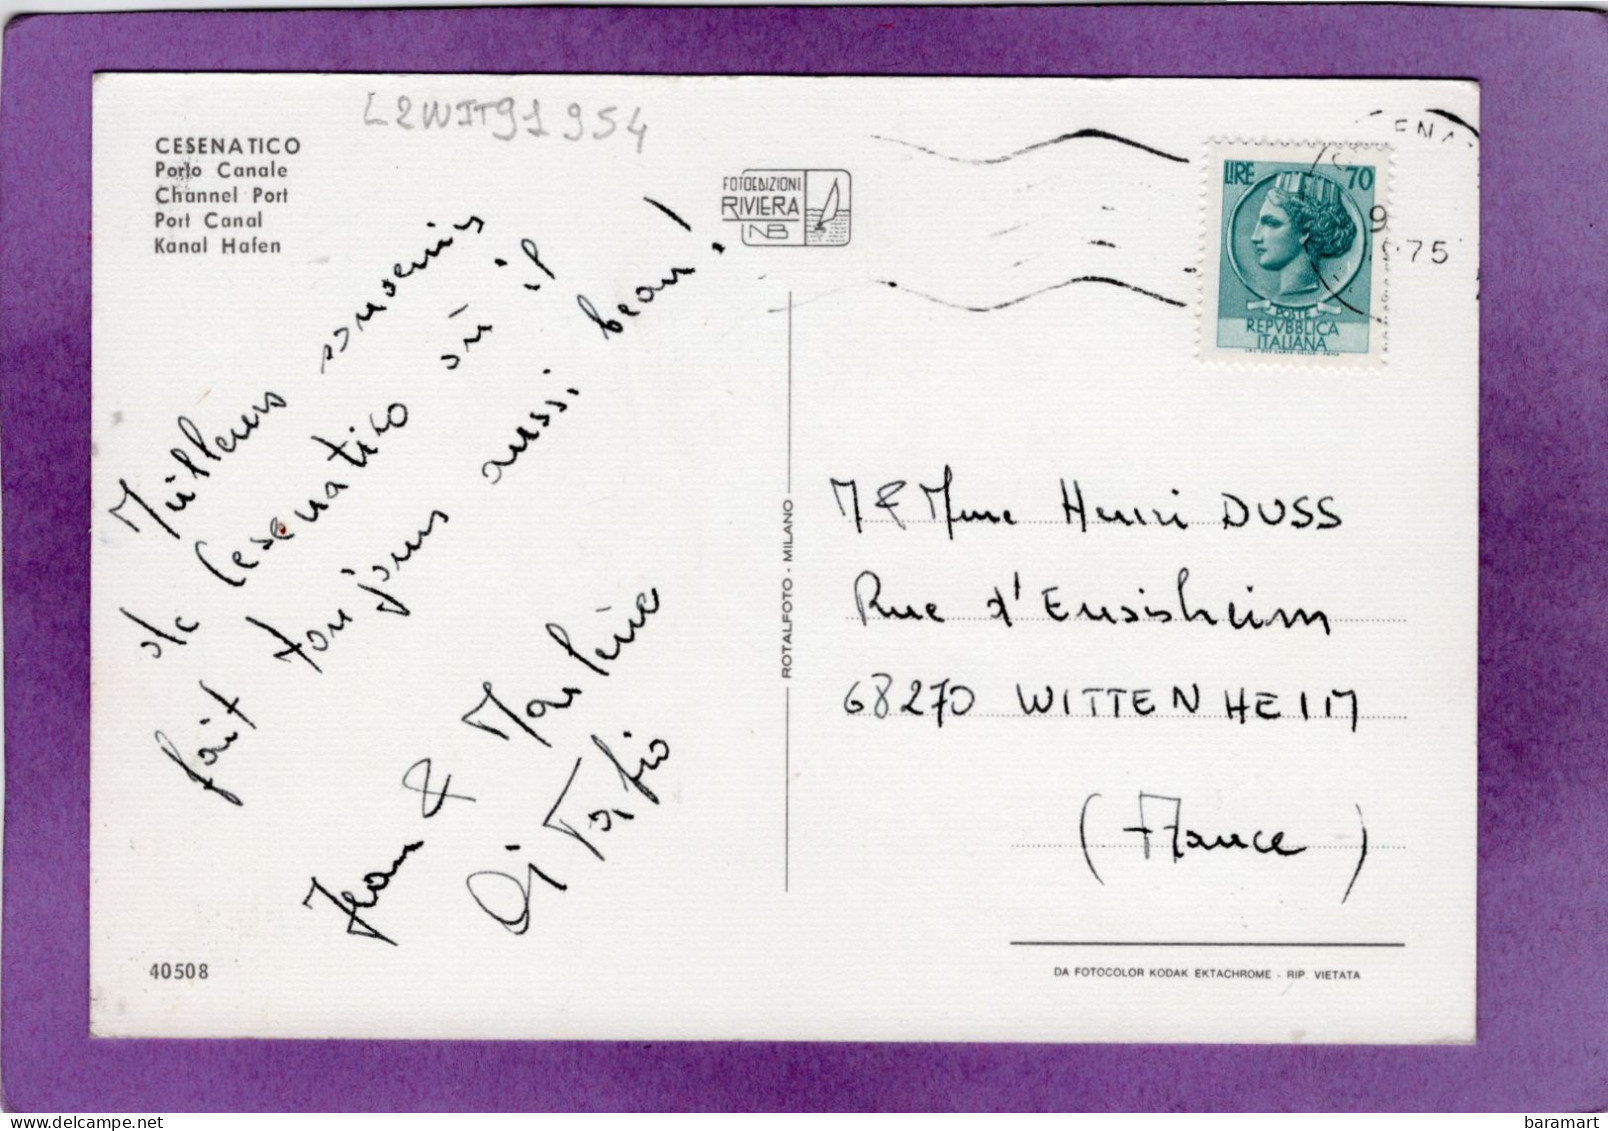 L2WIT91954
CESENATICO
Porto Canale
Channel Port
Port Canal
Kanal Hafen
FOTOEDIZIONI
RIVIERA
NB
LIRE 70
POSTE
REPVBBLICA
ITALIANA
ENA
9
75
Meilleurs souvenirs
de Cesenatico où il
fait toujours aussi beau!
Jean & Marlène
ROTALFOTO - MILANO
M & Mme Henri DUSS
Rue d'Ensisheim
68270 WITTENHEIM
(France)
40508
DA FOTOCOLOR KODAK EKTACHROME - RIP. VIETATA
baramart